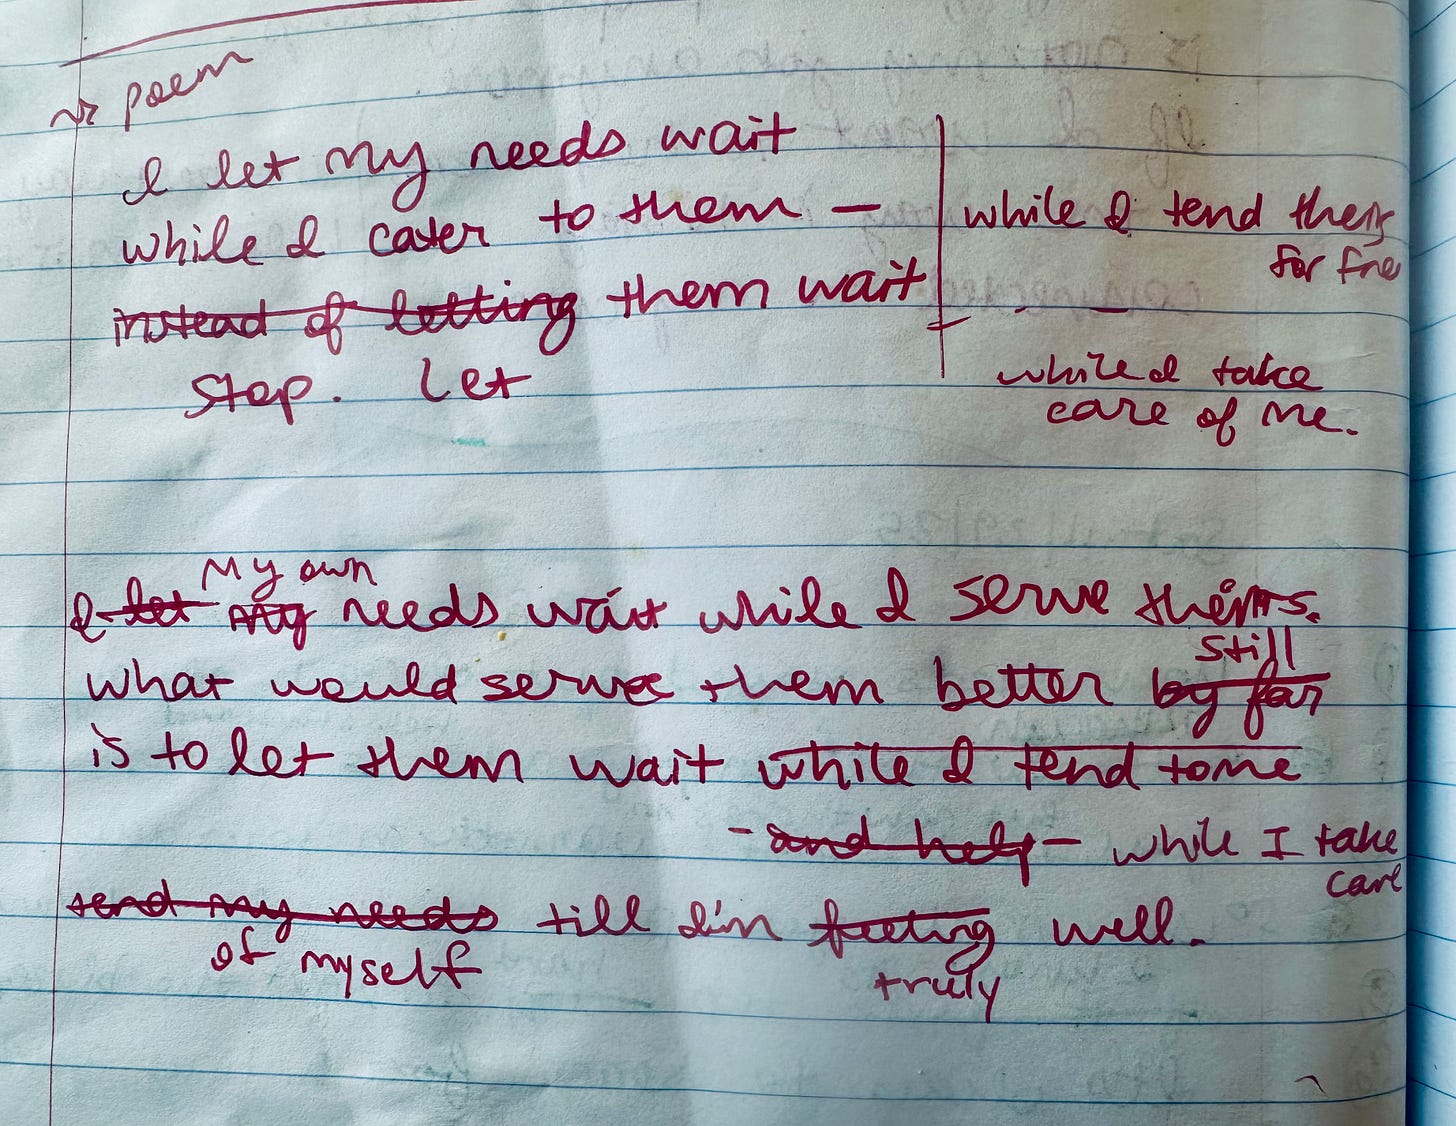 poem
I let my needs wait
while I cater to them —
instead of letting them wait
stop. Let
while I tend theirs
for free
while I take
care of me.
My own
I let my needs wait while I serve theirs.
still
what would serve them better by far
is to let them wait while I tend to me
- and help - while I take
care
tend my needs till I'm feeling well.
of myself
truly